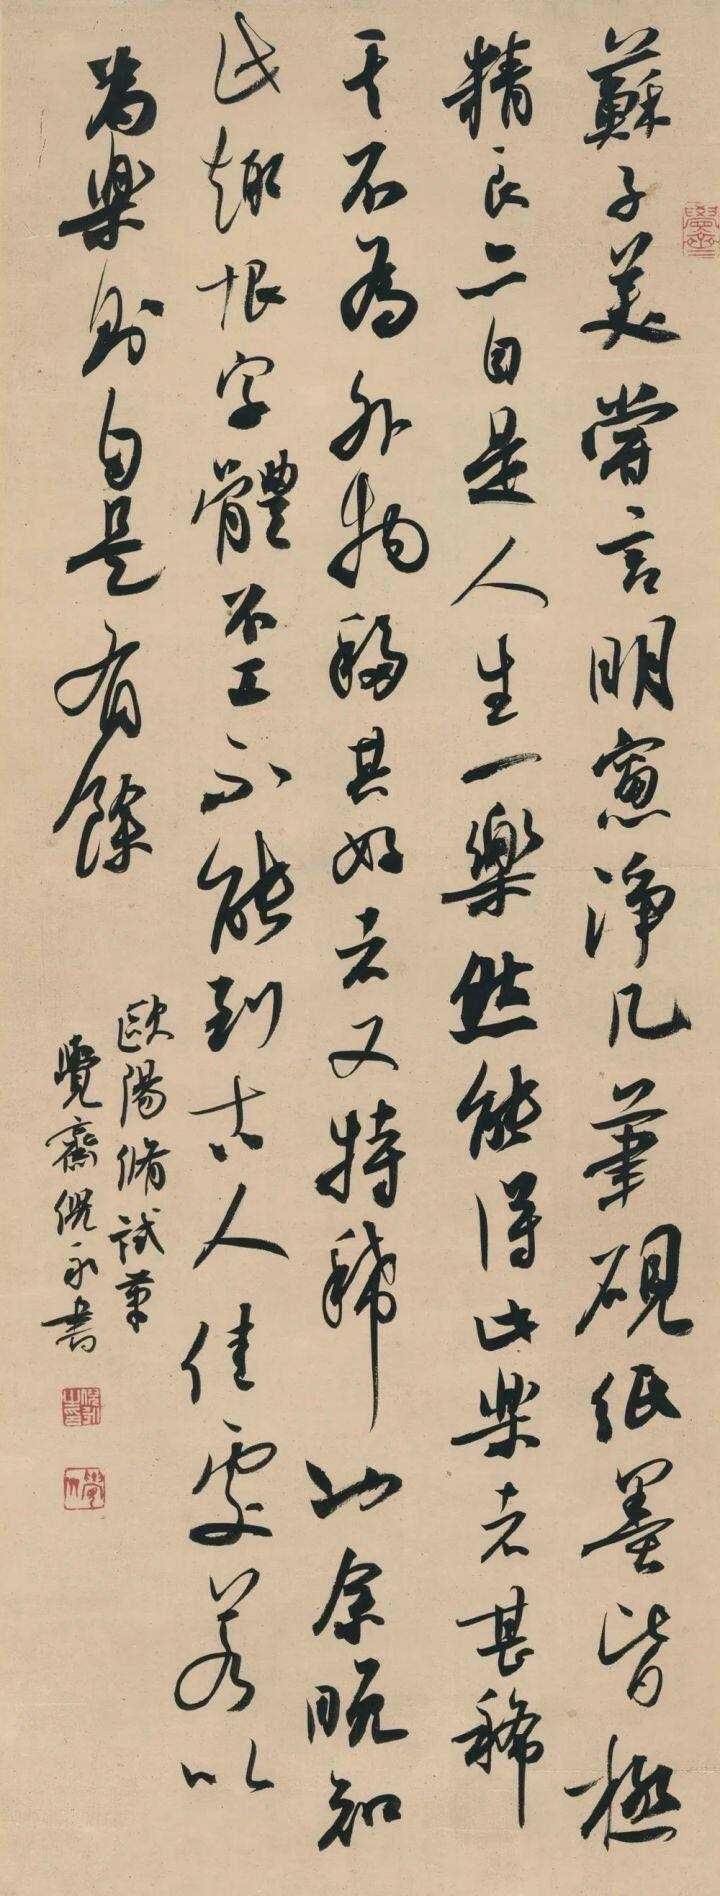 蘇子美嘗言明窻淨几筆硯紙墨皆極
精良亦自是人生一樂然能得此樂者甚稀
其不為外物移其好者又特稀也余晚知
此趣恨字體不工不能到古人佳處若以
為樂則自是有餘
歐陽脩試筆
覺齋倪永書